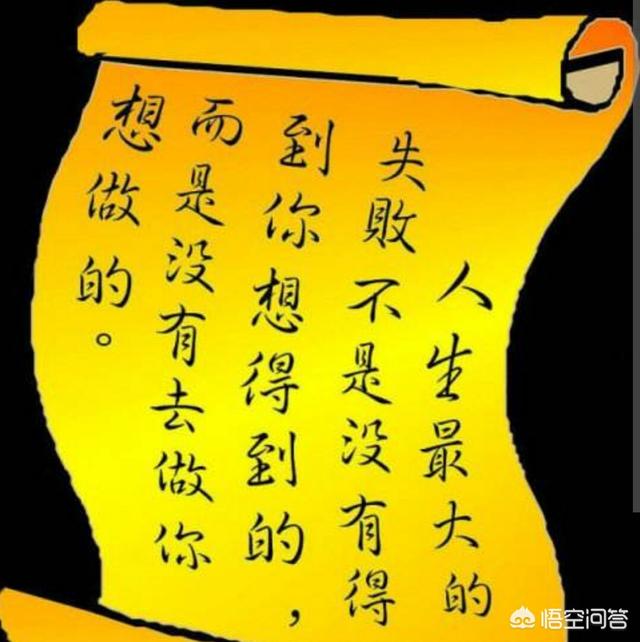 人生最大的
失敗不是没有得
到你想得到的，
而是没有去做你
想做的。
悟空问答